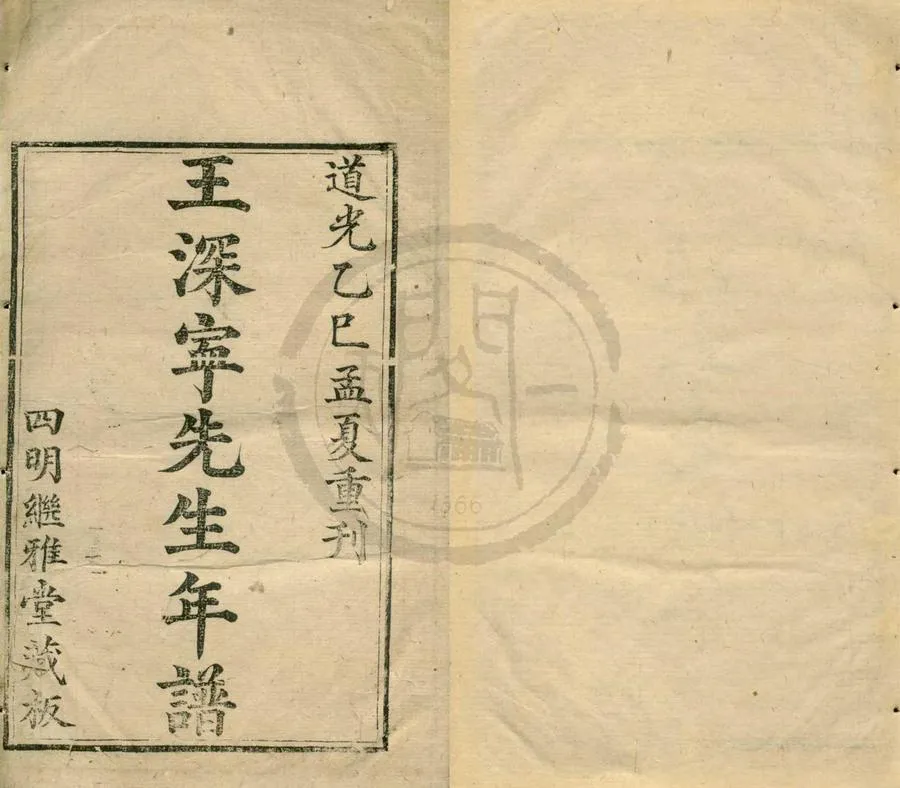 道光乙巳孟夏重刊
王深寧先生年譜
四明繼雅堂藏板
1566